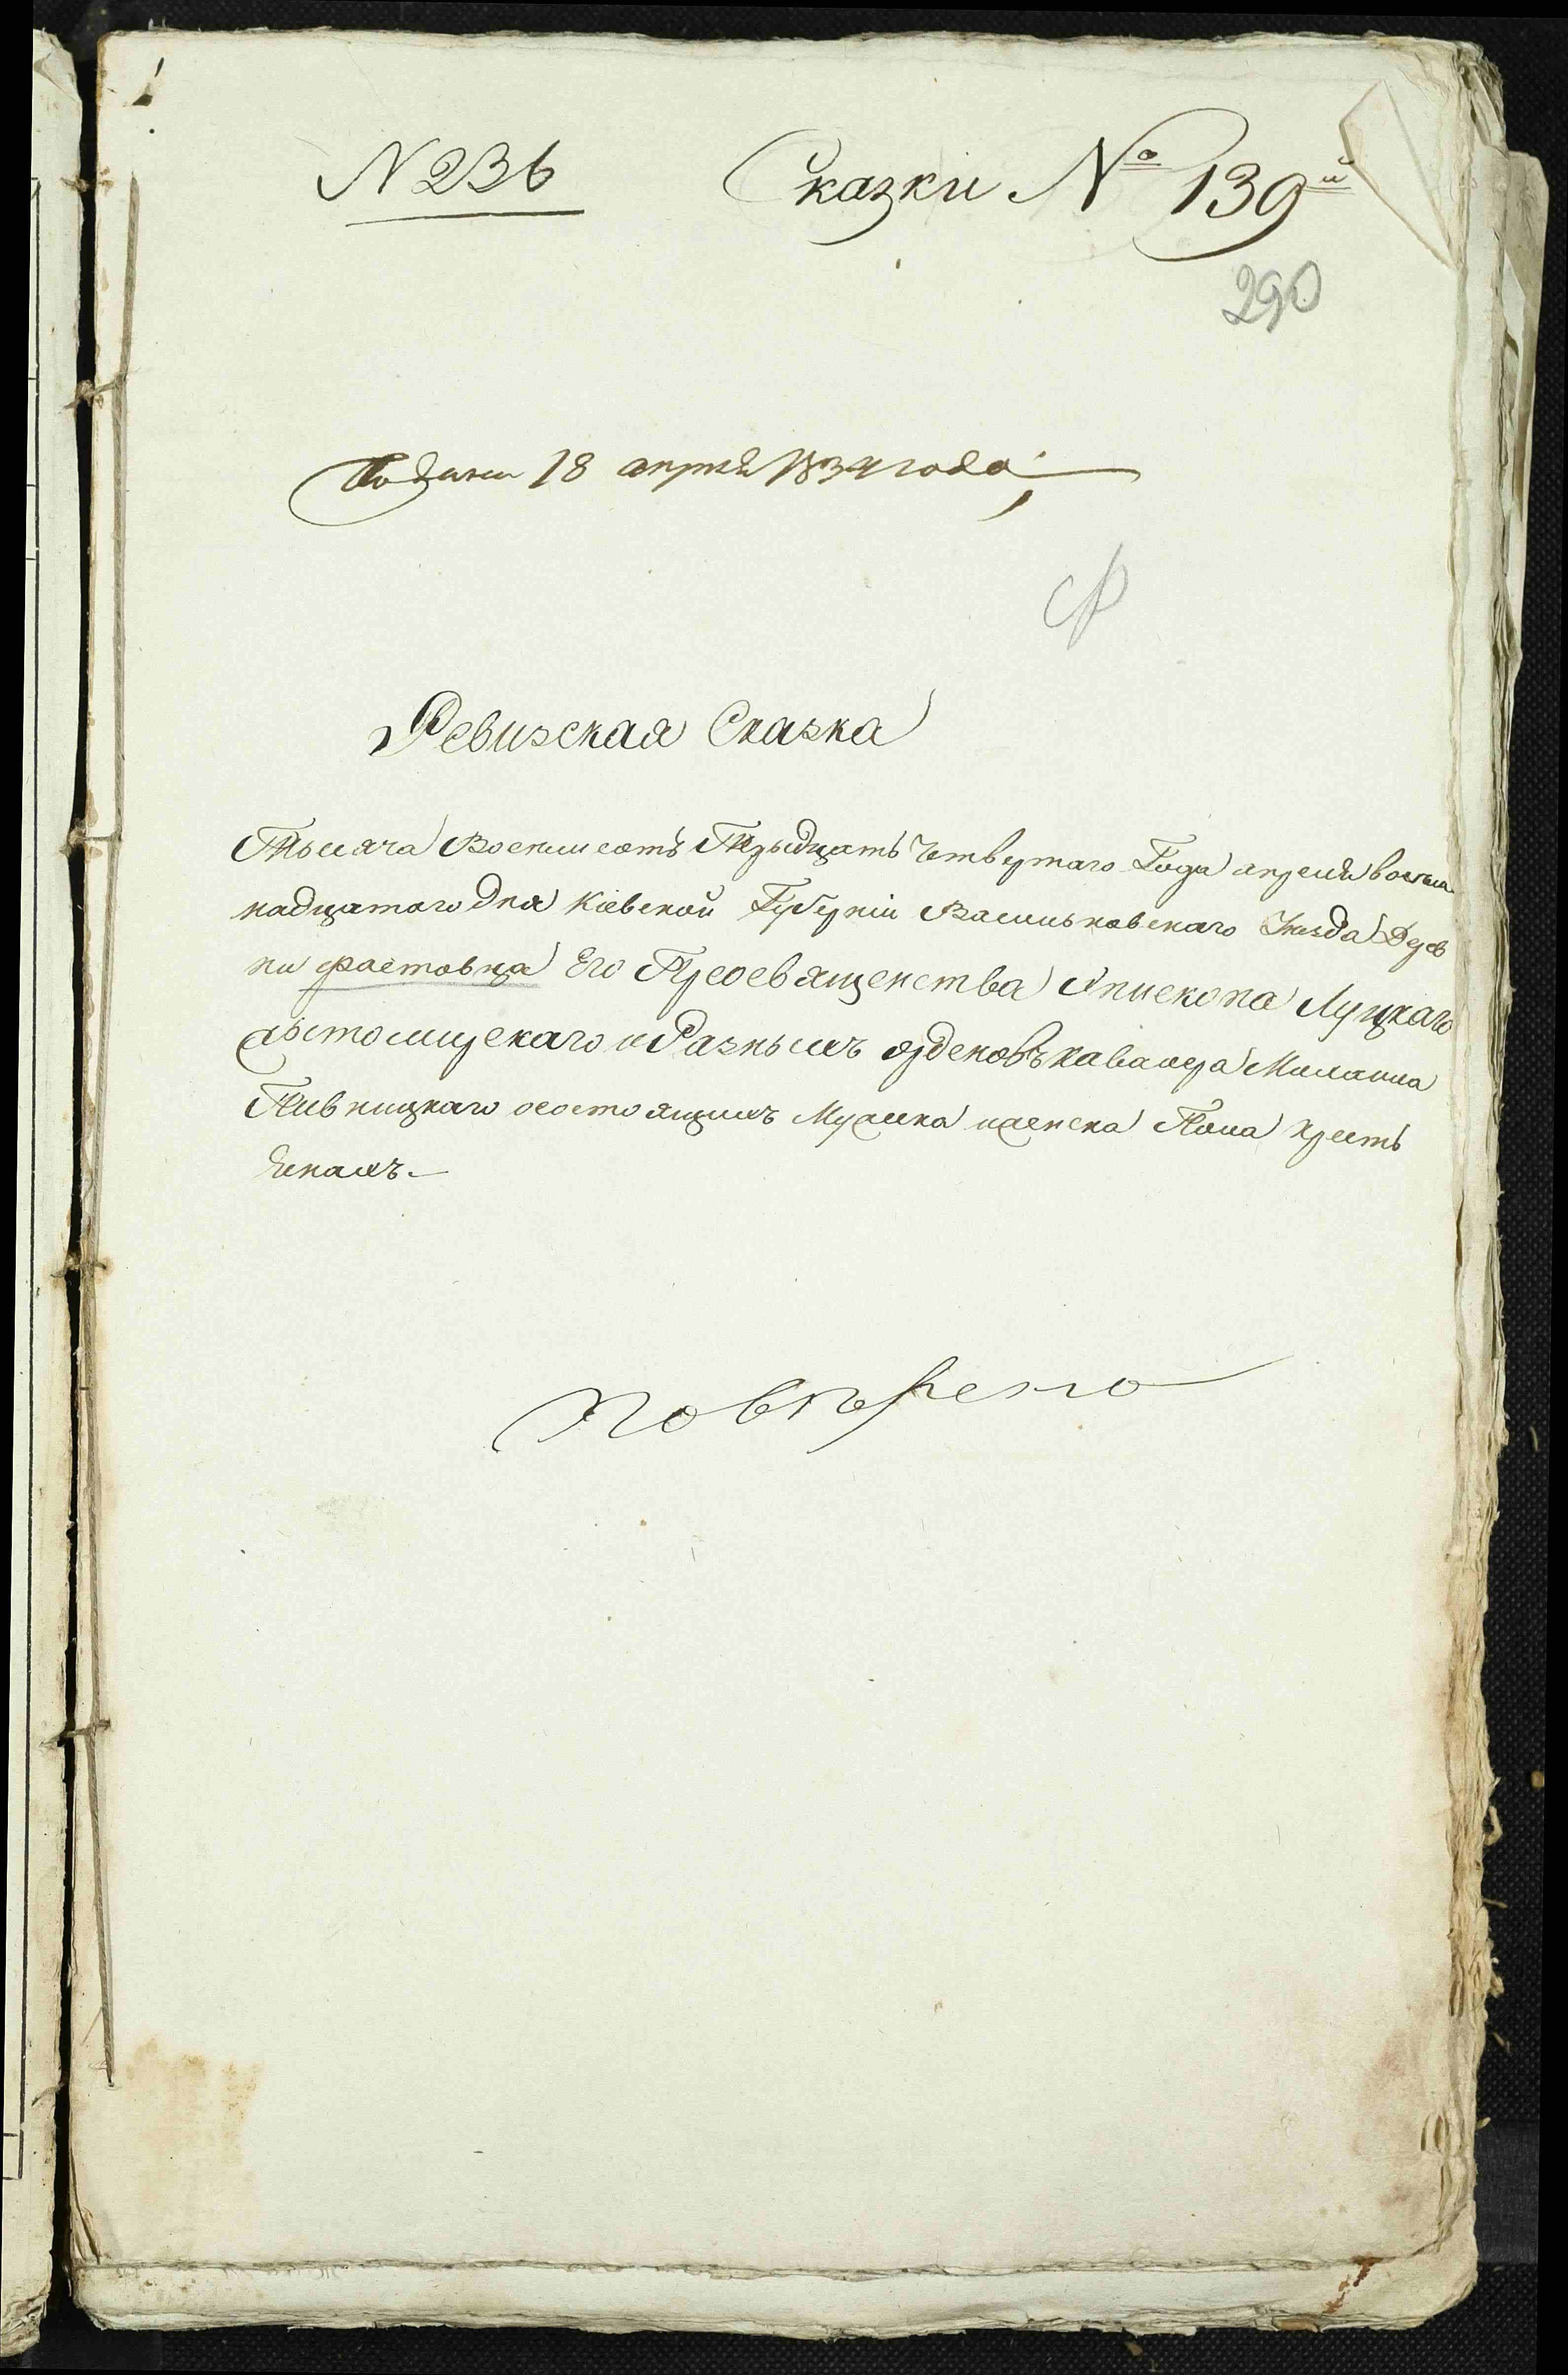 N 236 Сказки № 139й
290
Подана 18 апреля 1834 года
Ф
Ревизская Сказка
Тысяча Восемсотъ Тридцать Четвертаго Года апреля восем
надцатого дня Кіевской Губерніи Васильковскаго Уезда Дерев
ни Фастовца Его Преосвященства Епископа Луцкаго
Житомирскаго и Разныхъ орденовъ кавалера Михаила
Пивницкаго осостоящихъ Мужска иженска Пола крестъ
янахъ.
Поверено